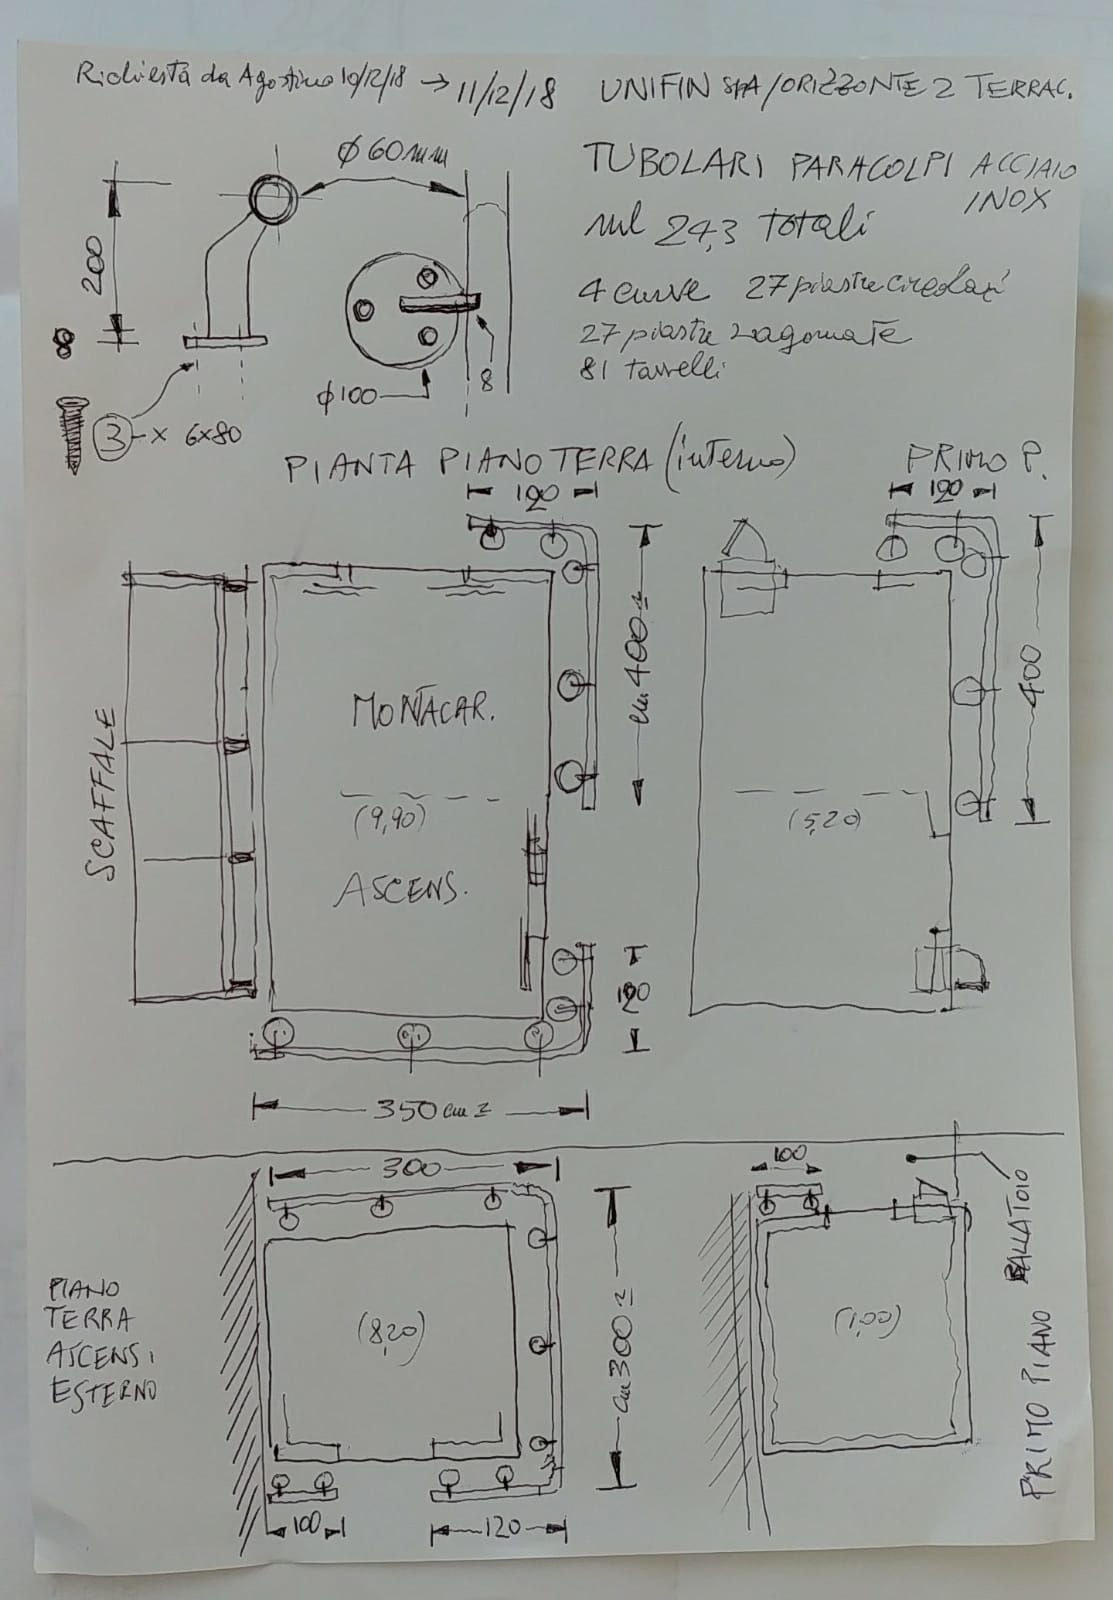 Richiesta da Agostino 10/12/18 → 11/12/18
UNIFIN SPA/ORIZZONTE 2 TERRAC.
TUBOLARI PARACOLPI ACCIAIO
INOX
ml 24,3 TOTALI
4 curve 27 piastre circolari
27 piastre sagomate
81 tasselli
Ø 60mm
200
8
8
Ø100
3 -x 6x80
PIANTA PIANO TERRA (interno)
PRIMO P.
120
120
cm 400 ±
400
SCAFFALE
MONTACAR.
(9,90)
ASCENS.
(5,20)
120
350 cm ±
300
100
BALLATOIO
PIANO
TERRA
ASCENS.
ESTERNO
(8,20)
cm 300 ±
(1,00)
PRIMO PIANO
100
120